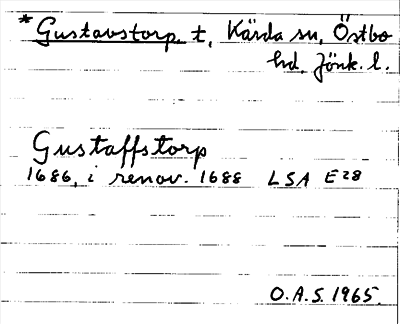 * Gustavstorp. t, Kärda sn, Östbo
hd. Jönk. l.
Gustaffstorp
1686, i renov. 1688 LSA E28
O.A.S. 1965.